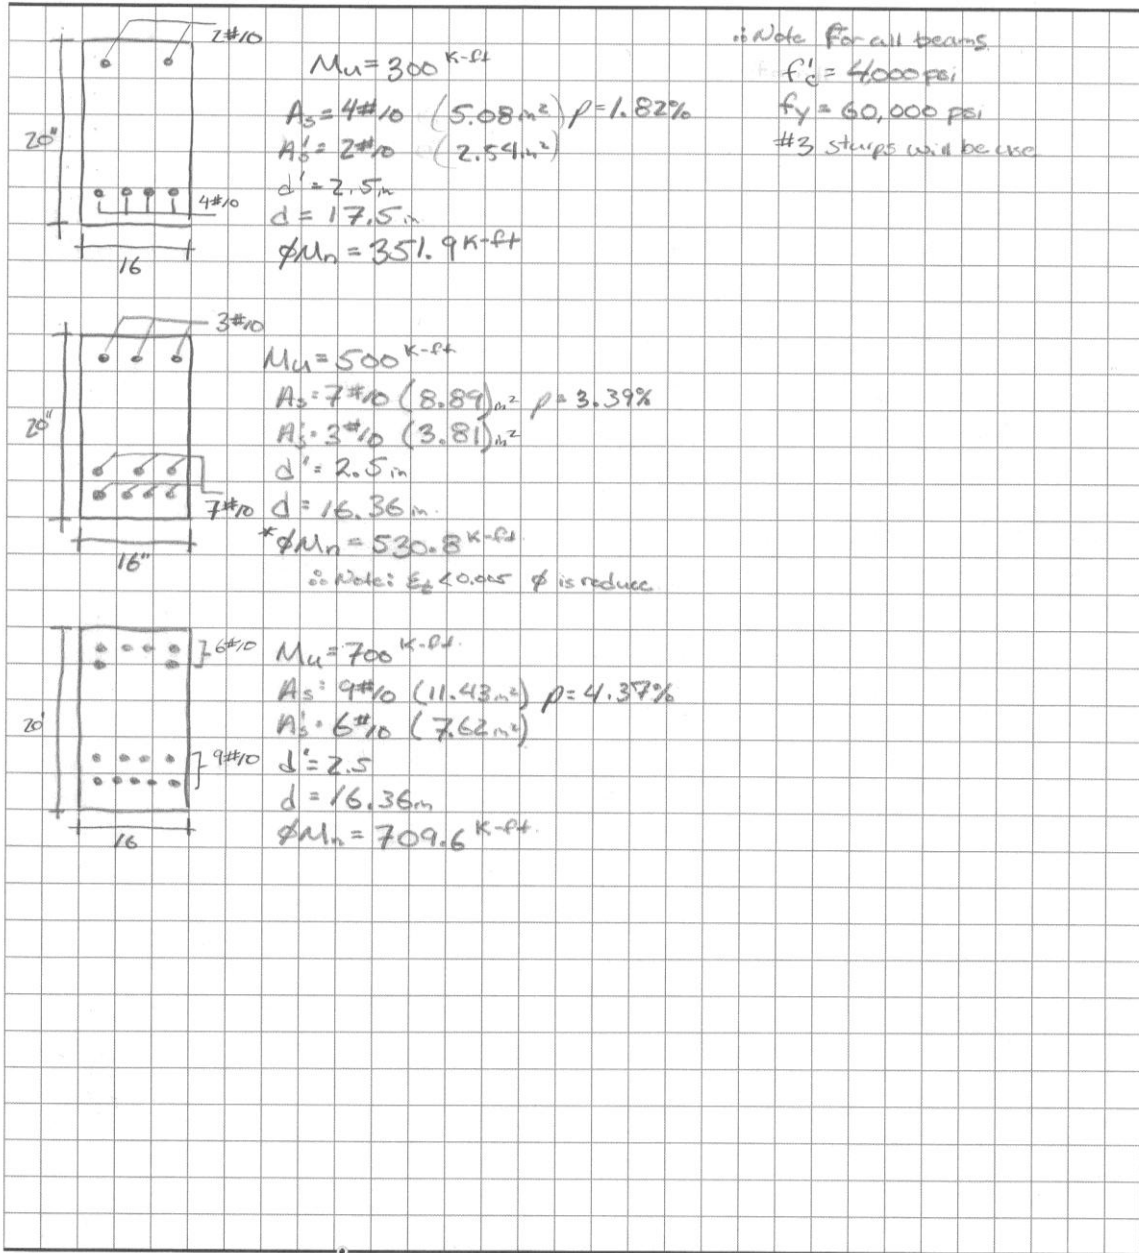 2#10
Mu = 300 K-ft
As = 4#10 (5.08in²) ρ = 1.82%
A's = 2#10 (2.54in²)
d' = 2.5in
d = 17.5in
φMn = 351.9 K-ft
20"
4#10
16
∴ Note For all beams
f'c = 4000 psi
fy = 60,000 psi
#3 will be use
3#10
Mu = 500 K-ft
As = 7#10 (8.89)in² ρ = 3.39%
A's = 3#10 (3.81)in²
d' = 2.5in
d = 16.36in
*φMn = 530.8 K-ft
∴ Note: εt < 0.005 φ is reduce
20"
7#10
16"
6#10
Mu = 700 K-ft
As = 9#10 (11.43in²) ρ = 4.37%
A's = 6#10 (7.62in²)
d' = 2.5
d = 16.36in
φMn = 709.6 K-ft
20'
9#10
16